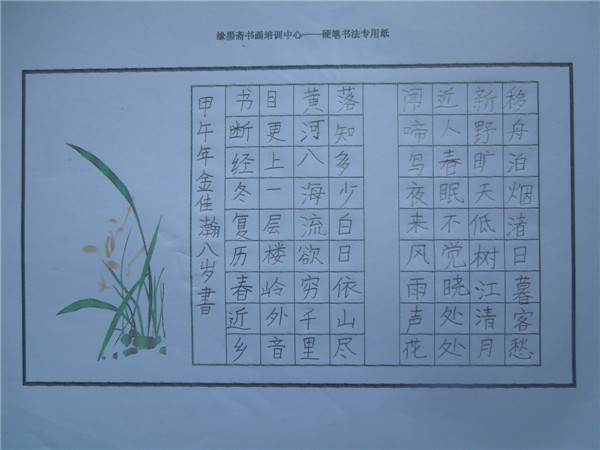 缘墨斋书画培训中心——硬笔书法专用纸
移舟泊烟渚日暮客愁
新野旷天低树江清月
近人春眠不觉晓处处
闻啼鸟夜来风雨声花
落知多少白日依山尽
黄河八海流欲穷千里
目更上一层楼岭外音
书断经冬复历春近乡
甲午年金佳瀚八岁書